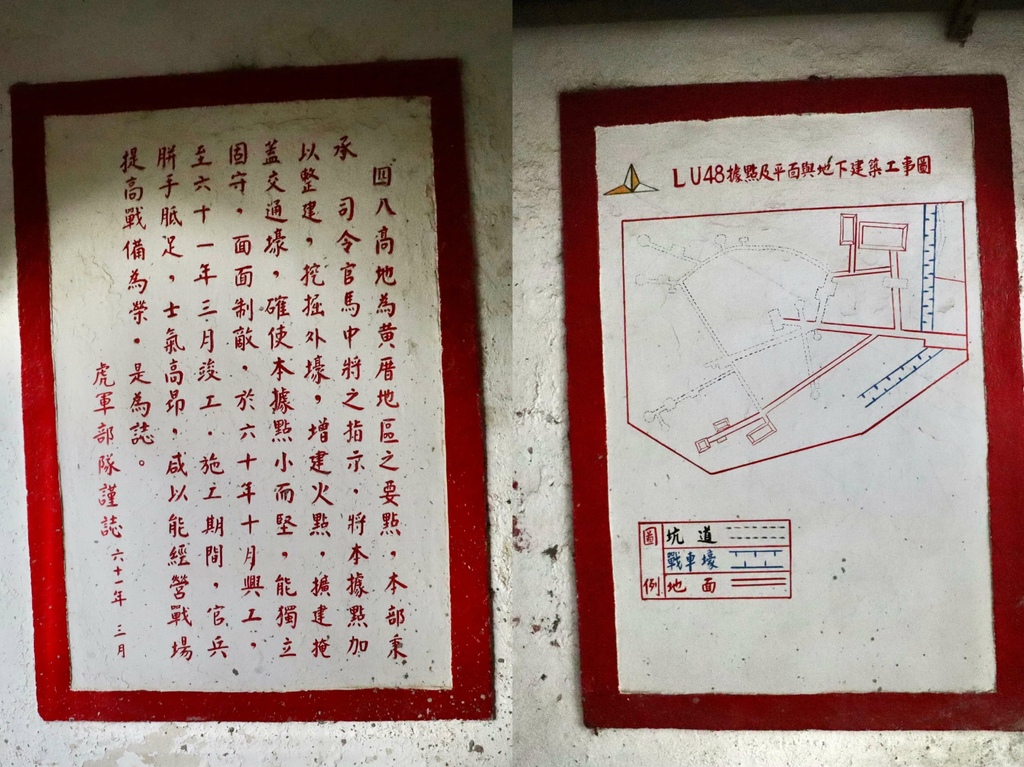 四八高地為黃厝地區之要點，本部秉
承　司令官馬中將之指示．將本據點加
以整建，挖掘外壕，增建火點．擴建掩
蓋交通壕，確使本據點小而堅，能獨立
固守，面面制敵．於六十年十月興工，
至六十一年三月竣工．施工期間，官兵
胼手胝足，士氣高昂，咸以能經營戰場
提高戰備為榮。是為誌。
虎軍部隊謹誌 六十一年 三月
LU48據點及平面與地下建築工事圖
圖例
坑道
戰車壕
地面